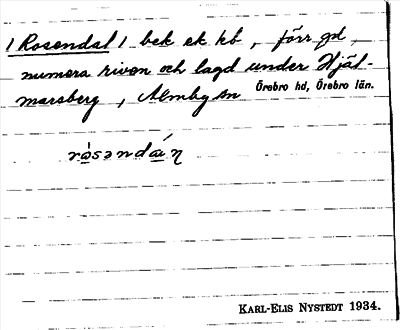 /Rosendal/ bek ek kb, förr gd,
numera riven och lagd under Hjäl-
marsberg, Almby sn Örebro hd, Örebro län.
KARL-ELIS NYSTEDT 1934.